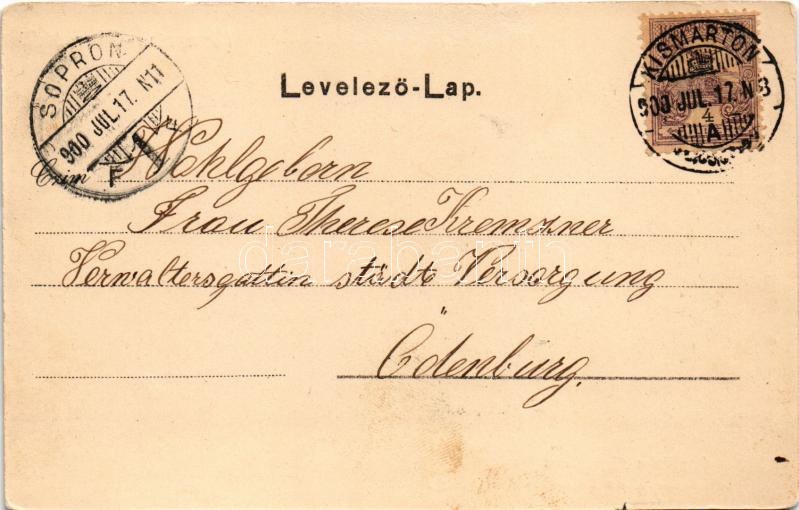 Levelező-Lap.
SOPRON
900 JUL. 17. N11
F 1
KISMARTON
900 JUL. 17. N 8
4
A
Czim
Wohlgeborn
Frau Therese Kremsner
Verwaltersgattin städt Versorgung
Ödenburg.
darabanth